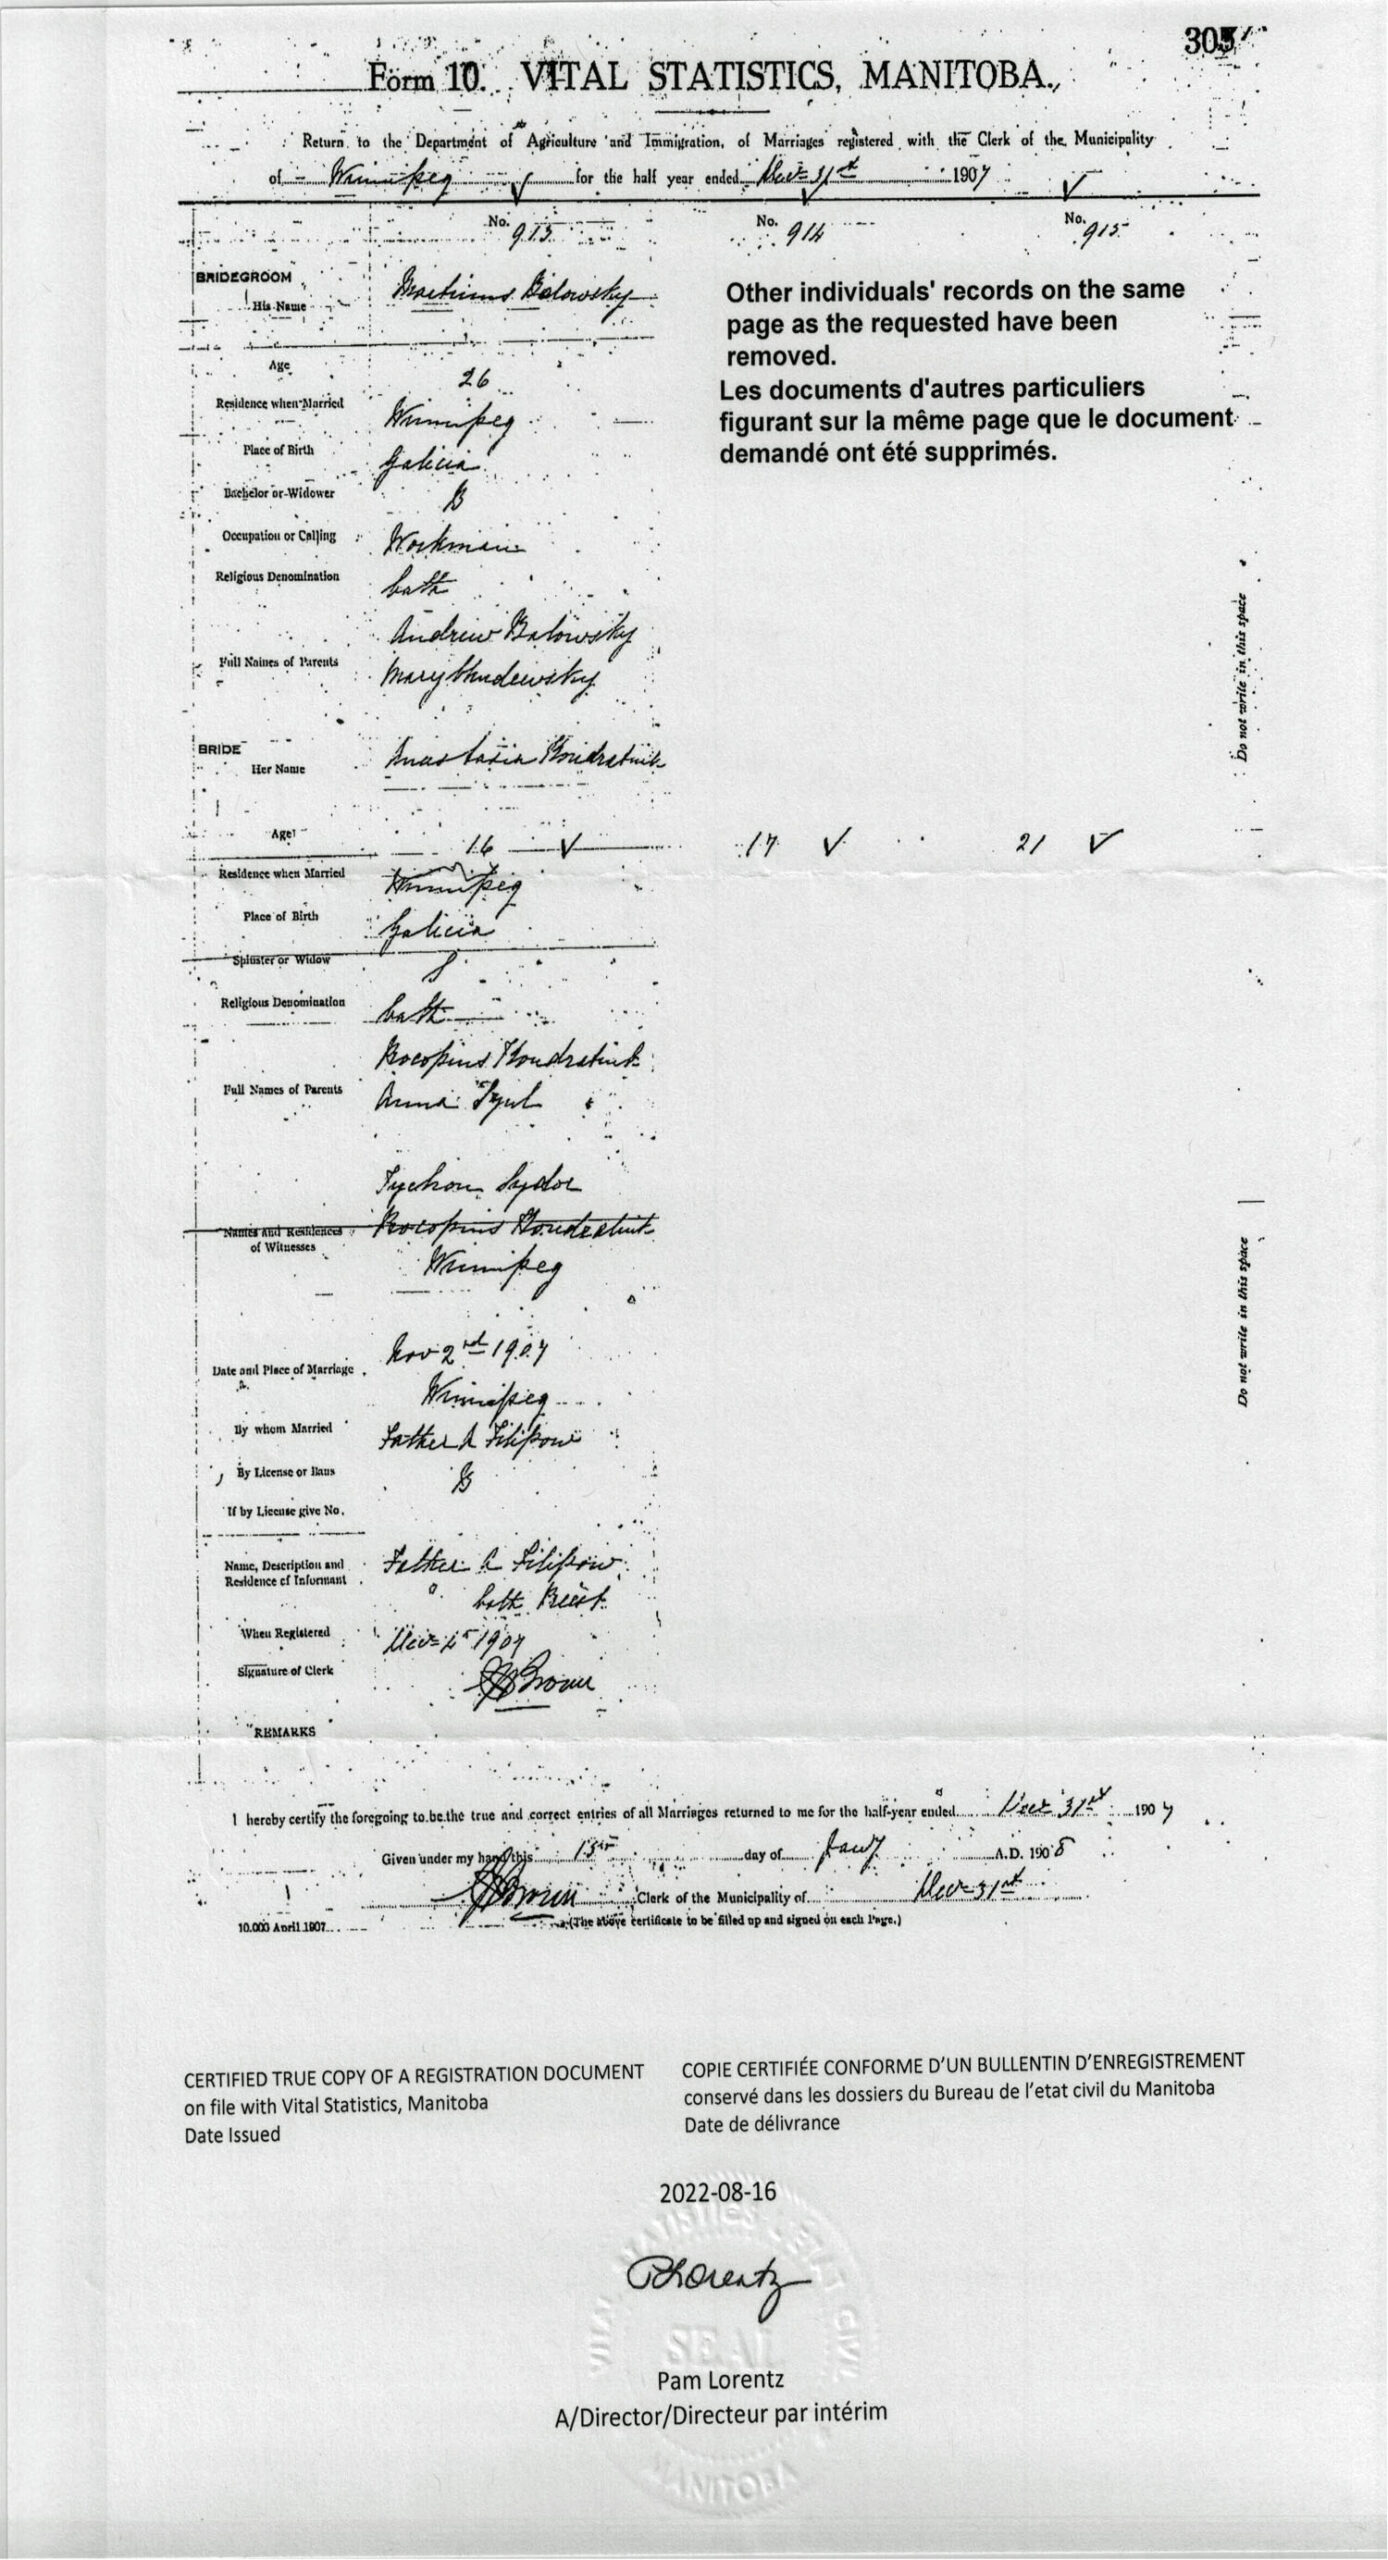 305
Form 10. VITAL STATISTICS, MANITOBA.
Return to the Department of Agriculture and Immigration, of Marriages registered with the Clerk of the Municipality
of Winnipeg for the half year ended Dec 31st 1907
No. 913 No. 914 No. 915
BRIDEGROOM
His Name Balowsky
Other individuals' records on the same
page as the requested have been
removed.
Les documents d'autres particuliers
figurant sur la même page que le document
demandé ont été supprimés.
Age 26
Residence when Married Winnipeg
Place of Birth Galicia
Bachelor or Widower B
Occupation or Calling Workman
Religious Denomination Cath
Andrew Balowsky
Full Names of Parents Mary
BRIDE
Her Name Anastasia
Age 16 17 21
Residence when Married Winnipeg
Place of Birth Galicia
Spinster or Widow S
Religious Denomination Cath
Procopius Kondratiuk
Full Names of Parents Anna
Tychon Sydor
Names and Residences of Witnesses Procopius Kondratiuk
Winnipeg
Date and Place of Marriage Nov 2nd 1907
Winnipeg
By whom Married Father A Filipow
By License or Bans B
If by License give No.
Name, Description and Residence of Informant Father A Filipow
Cath Priest
When Registered Dec 1907
Signature of Clerk Brown
REMARKS
I hereby certify the foregoing to be the true and correct entries of all Marriages returned to me for the half-year ended Dec 31st 1907
Given under my hand this 15th day of Jany A.D. 1908
Brown Clerk of the Municipality of Dec 31st
10.000 April 1907 (The above certificate to be filled up and signed on each Page.)
Do not write in this space
Do not write in this space
CERTIFIED TRUE COPY OF A REGISTRATION DOCUMENT
on file with Vital Statistics, Manitoba
Date Issued
COPIE CERTIFIÉE CONFORME D'UN BULLENTIN D'ENREGISTREMENT
conservé dans les dossiers du Bureau de l'etat civil du Manitoba
Date de délivrance
2022-08-16
PLorentz
SEAL
Pam Lorentz
A/Director/Directeur par intérim
MANITOBA